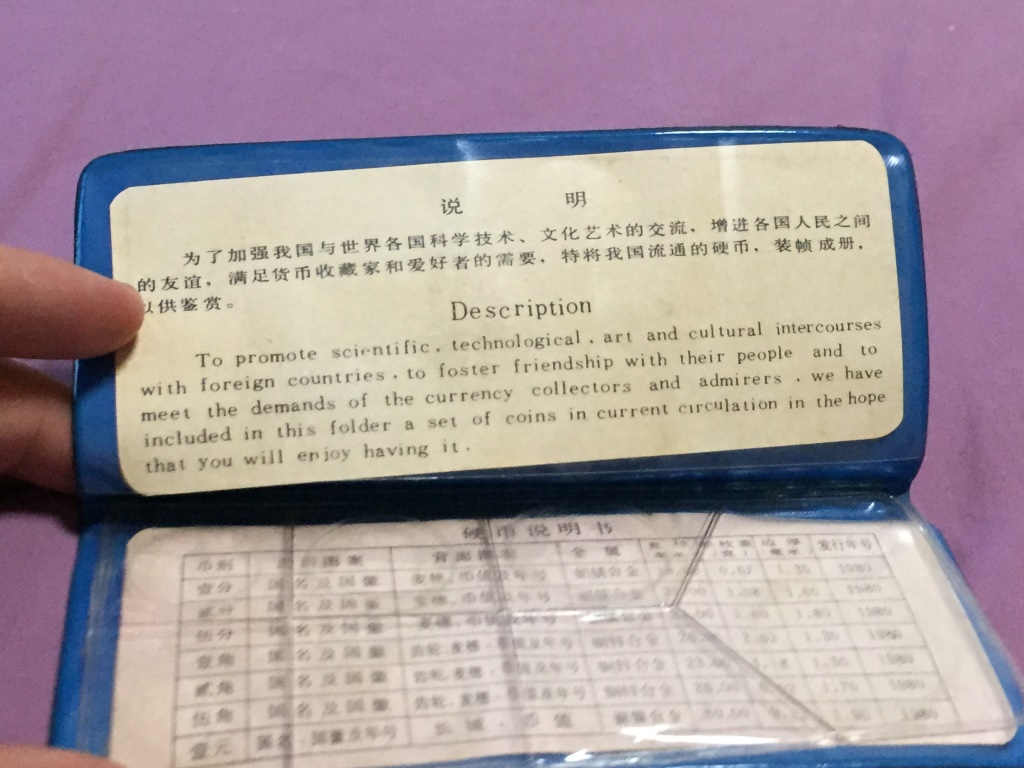 说 明
为了加强我国与世界各国科学技术、文化艺术的交流，增进各国人民之间
的友谊，满足货币收藏家和爱好者的需要，特将我国流通的硬币，装帧成册，
以供鉴赏。
Description
To promote scientific, technological, art and cultural intercourses
with foreign countries, to foster friendship with their people and to
meet the demands of the currency collectors and admirers, we have
included in this folder a set of coins in current circulation in the hope
that you will enjoy having it.
硬币说明书
币别 正面图案 背面图案 金属 发行年号
壹分 国名及国徽 麦穗、币值及年号 铝镁合金 0.67 1980
贰分 国名及国徽 麦穗、币值及年号 铝镁合金 1.60 1980
伍分 国名及国徽 麦穗、币值及年号 1.80 1980
壹角 国名及国徽 齿轮、麦穗、币值及年号 铜锌合金 1980
贰角 国名及国徽 齿轮、麦穗、币值及年号 铜锌合金 23.00 1980
伍角 国名及国徽 齿轮、麦穗、币值及年号 铜锌合金 26.00 1980
壹元 国名、国徽及年号 长城、币值 1980